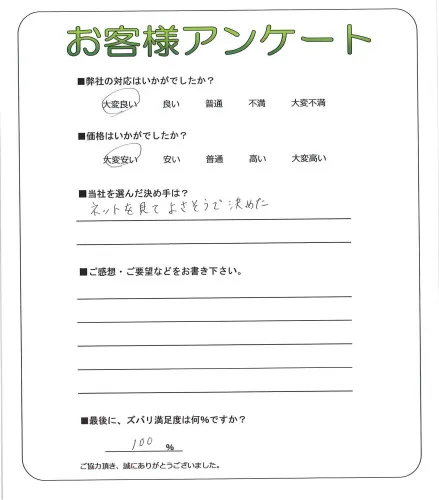 お客様アンケート
■弊社の対応はいかがでしたか？
大変良い 良い 普通 不満 大変不満
■価格はいかがでしたか？
大変安い 安い 普通 高い 大変高い
■当社を選んだ決め手は？
ネットを見て よさそうで決めた
■ご感想・ご要望などをお書き下さい。
■最後に、ズバリ満足度は何％ですか？
100 %
ご協力頂き、誠にありがとうございました。